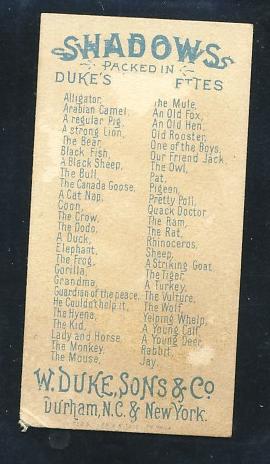 SHADOWS
PACKED IN
DUKE'S
Alligator,
Arabian Camel,
A regular Pig,
A strong Lion,
The Bear,
Black Fish,
A Black Sheep,
The Bull,
The Canada Goose,
A Cat Nap,
Coon,
The Crow,
The Dodo,
A Duck,
Elephant,
The Frog,
Gorilla,
Grandma,
Guardian of the peace,
He Couldn't help it,
The Hyena,
The Kid,
Lady and Horse
The Monkey,
The Mouse,
he Mule,
An Old Fox,
An Old Hen,
Old Rooster,
One of the Boys,
Our Friend Jack,
The Owl,
Pat,
Pigeon,
Pretty Poll,
Quack Doctor,
The Ram,
The Rat,
Rhinoceros,
Sheep,
A Striking Goat,
The Tiger,
A Turkey,
The Vulture,
The Wolf,
Yelping Whelp,
A Young Calf,
A Young Deer,
Rabbit,
Jay.
W. DUKE, SONS & CO
Durham, N.C. & New York.